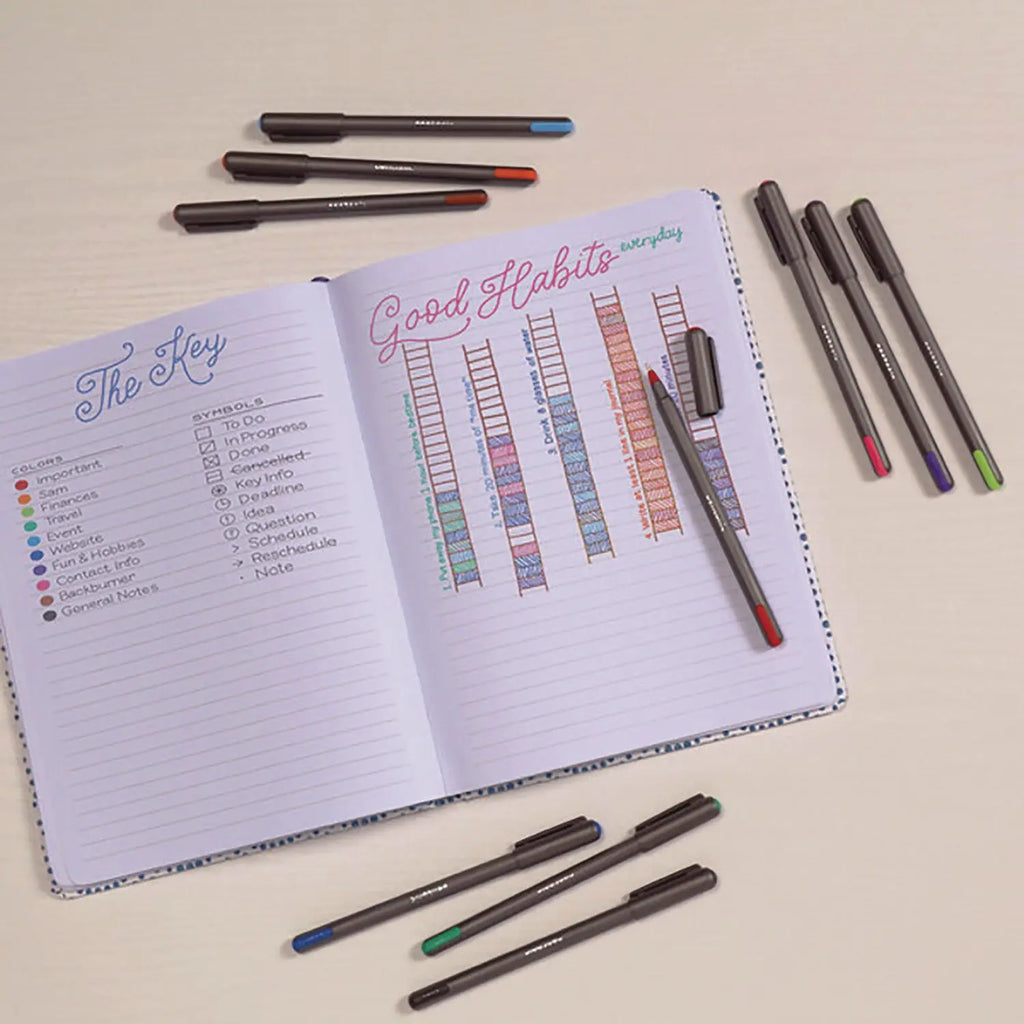 The Key
COLORS
Important
Sam
Finances
Travel
Event
Website
Fun & Hobbies
Contact Info
Backburner
General Notes
SYMBOLS
To Do
In Progress
Done
Cancelled
Key Info
Deadline
Idea
Question
> Schedule
→ Reschedule
· Note
Good Habits everyday
1. Put away my phone 1 hour before bedtime
2. Take 20 minutes of "me time"
3. Drink 8 glasses of water
4. Write at least 1 line in my journal
minutes